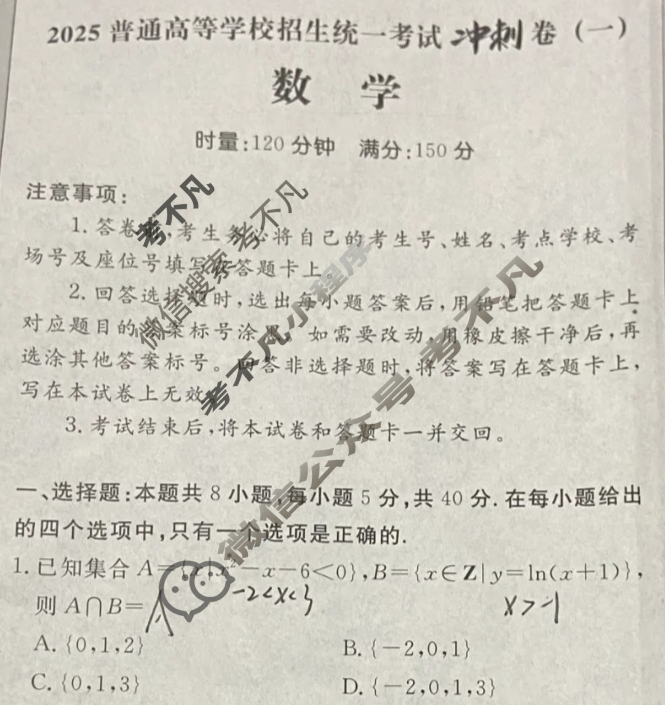 2025 普通高等学校招生统一考试 冲刺 卷 (一)
数 学
时量:120 分钟 满分:150 分
注意事项:
1. 答卷,考生务必将自己的考生号、姓名、考点学校、考
场号及座位号填写在答题卡上
2. 回答选择题时,选出每小题答案后,用铅笔把答题卡上
对应题目的答案标号涂黑。如需要改动,用橡皮擦干净后,再
选涂其他答案标号。回答非选择题时,将答案写在答题卡上,
写在本试卷上无效
3. 考试结束后,将本试卷和答题卡一并交回。
一、选择题:本题共 8 小题,每小题 5 分,共 40 分. 在每小题给出
的四个选项中,只有一个选项是正确的.
1. 已知集合 A={x|x²-x-6<0},B={x∈Z|y=ln(x+1)},
则 A∩B=
-2<x<3
x>-1
A. {0,1,2}
B. {-2,0,1}
C. {0,1,3}
D. {-2,0,1,3}
考不凡
微信搜索 考不凡
考不凡小程序
微信公众号 考不凡